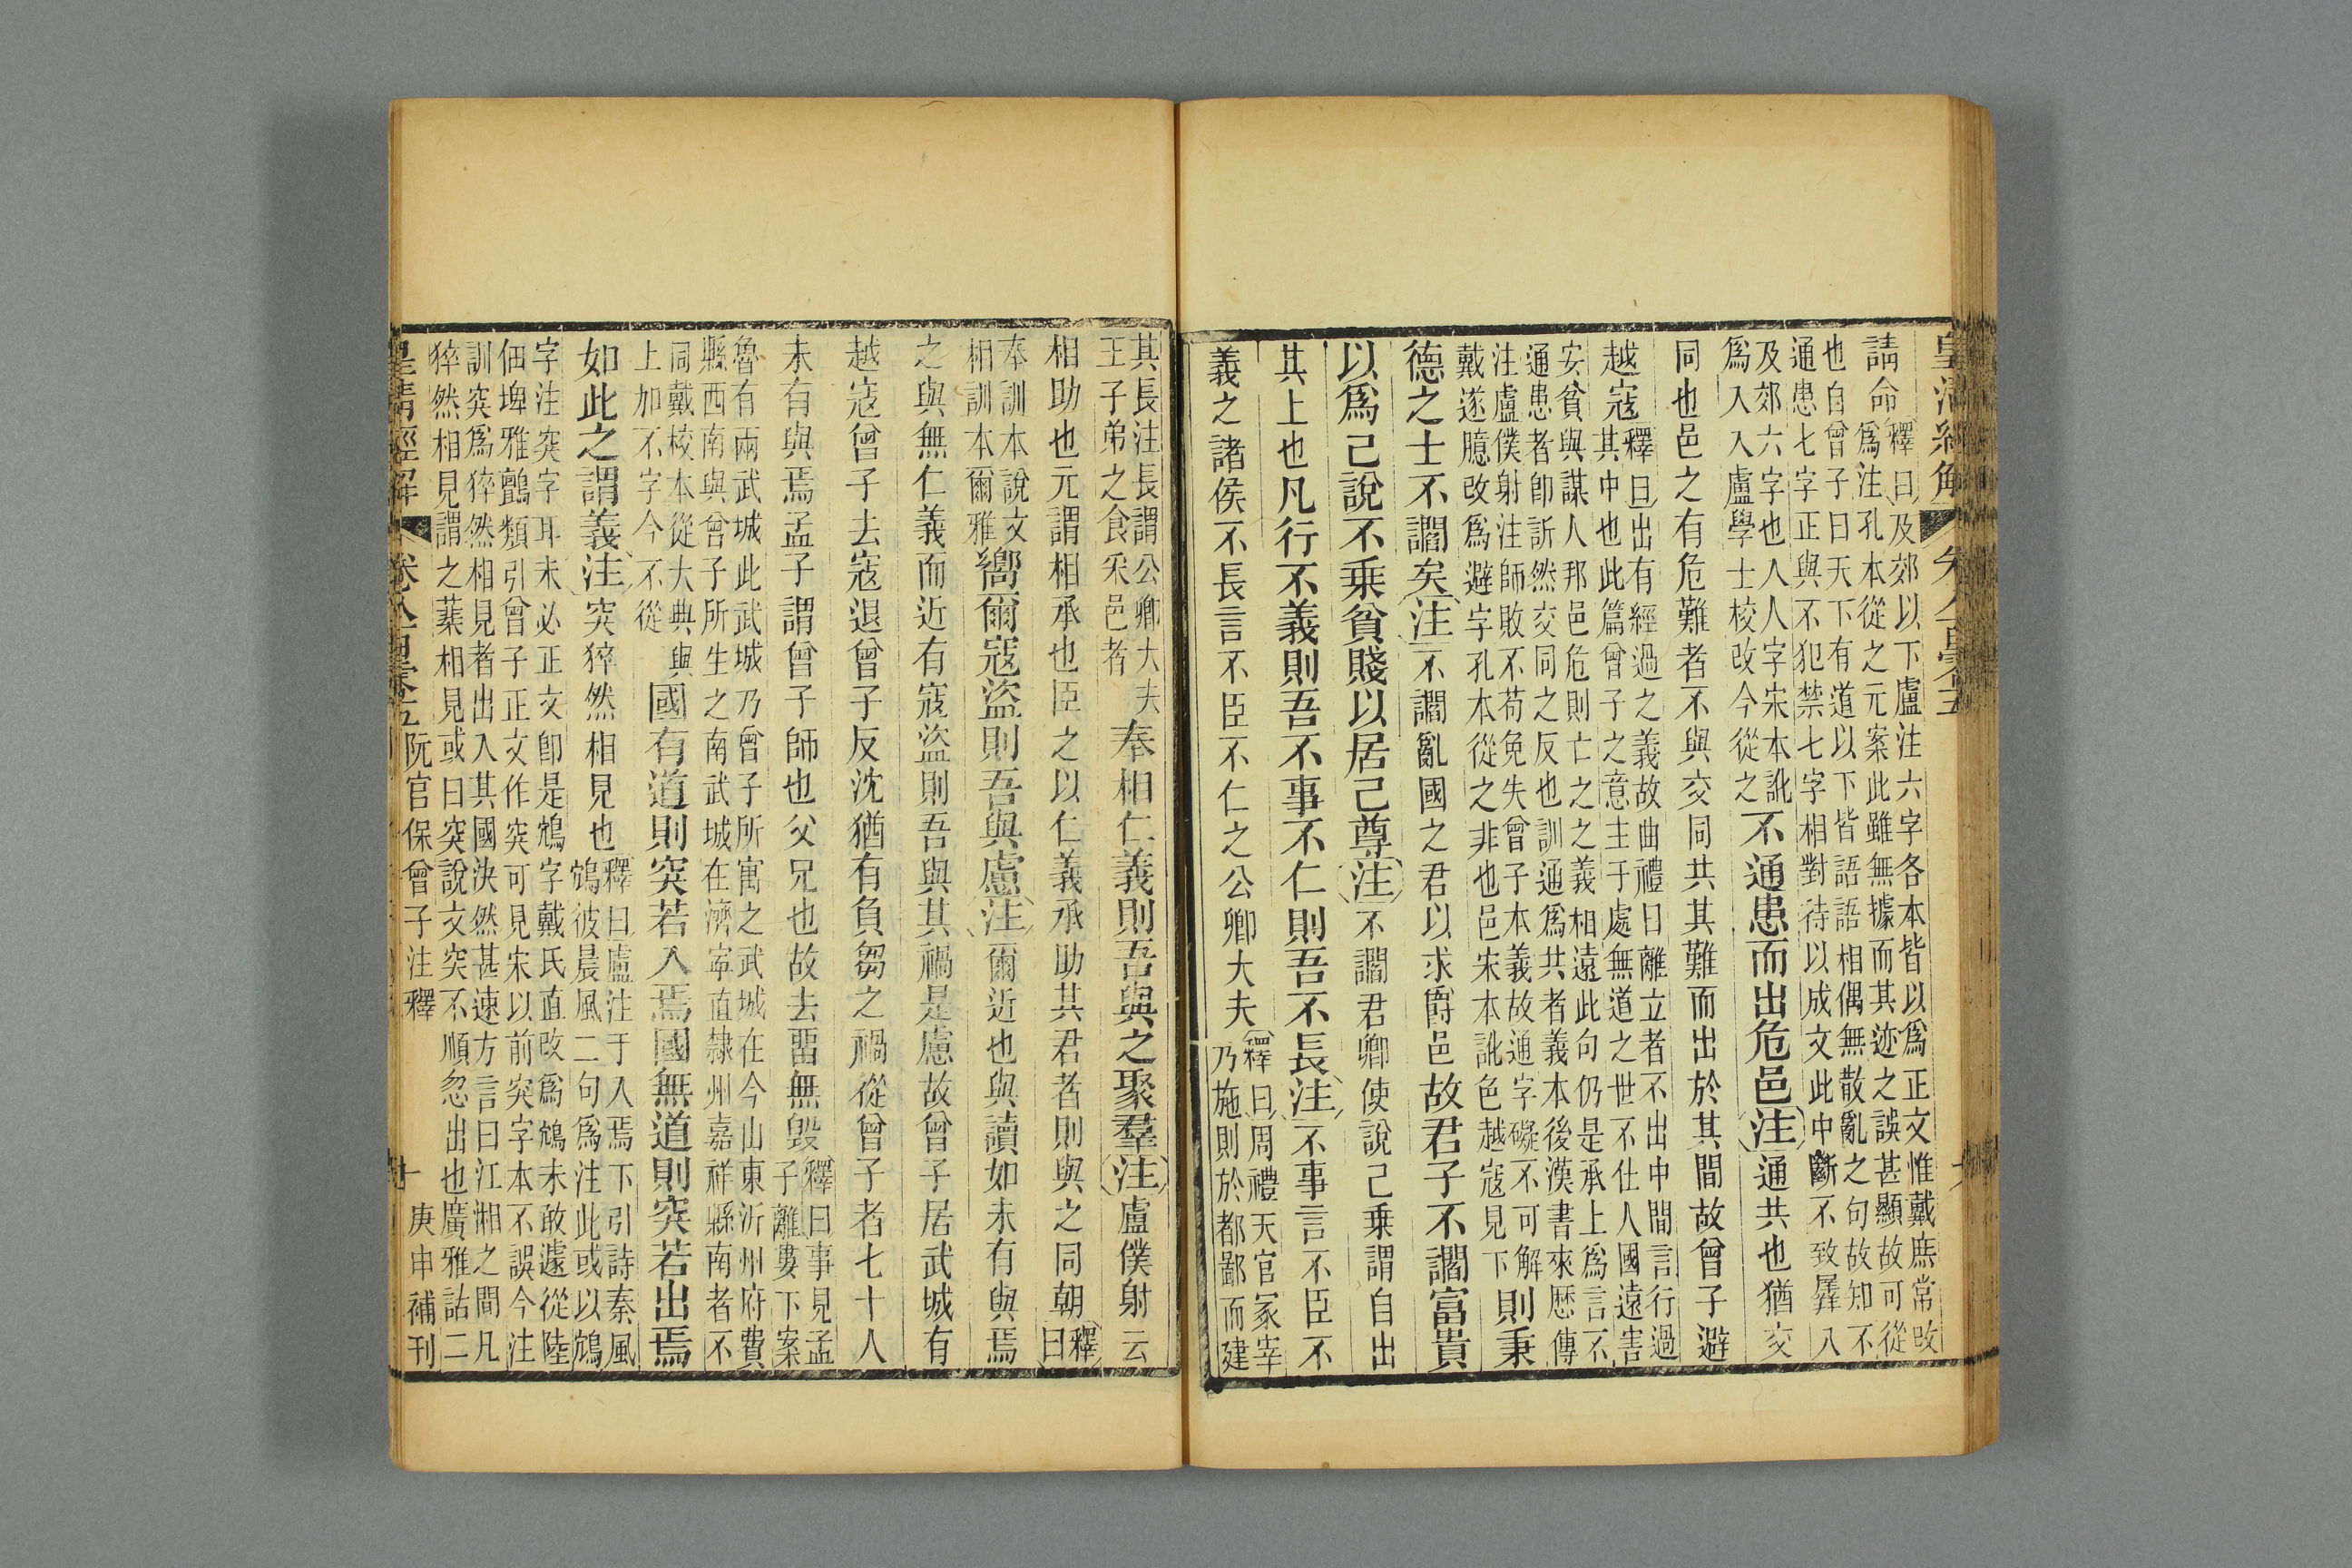 皇清經解
請命釋曰及郊以下盧注六字各本皆以爲正文惟戴庶常改
爲注孔本從之元案此雖無據而其迹之誤甚顯故可從
也自曾子曰天下有道以下皆語語相偶無散亂之句故知不
通患七字正與不犯禁七字相對待以成文此中斷不致羼入
及郊六字也人人字宋本訛
爲入入盧學士校改今從之不通患而出危邑注通共也猶交
同也邑之有危難者不與交同共其難而出於其間故曾子避
越寇釋曰出有經過之義故曲禮曰離立者不出中間言行過
其中也此篇曾子之意主于處無道之世不仕人國遠害
安貧與謀人邦邑危則亡之之義相遠此句仍是承上爲言不
通患者卽訢然交同之反也訓通爲共者義本後漢書來歷傳
注盧僕射注師敗不苟免失曾子本義故通字礙不可解
戴遂臆改爲避字孔本從之非也邑宋本訛色越寇見下則秉
德之士不讇矣注不讇亂國之君以求爵邑故君子不讇富貴
以爲己說不乘貧賤以居己尊注不讇君卿使說己乘謂自出
其上也凡行不義則吾不事不仁則吾不長注不事言不臣不
義之諸侯不長言不臣不仁之公卿大夫釋曰周禮天官冢宰
乃施則於都鄙而建
其長注長謂公卿大夫
王子弟之食采邑者奉相仁義則吾與之聚羣注盧僕射云
相助也元謂相承也臣之以仁義承助其君者則與之同朝釋曰
奉訓本說文
相訓本爾雅嚮爾寇盜則吾與慮注爾近也與讀如未有與焉
之與無仁義而近有寇盜則吾與其禍是慮故曾子居武城有
越寇曾子去寇退曾子反沈猶有負芻之禍從曾子者七十人
未有與焉孟子謂曾子師也父兄也故去畱無毀釋曰事見孟
子離婁下案
魯有兩武城此武城乃曾子所寓之武城在今山東沂州府費
縣西南與曾子所生之南武城在濟寧直隷州嘉祥縣南者不
同戴校本從大典與
上加不字今不從國有道則突若入焉國無道則突若出焉
如此之謂義注突猝然相見也釋曰盧注于入焉下引詩秦風
鴥彼晨風二句爲注此或以鴥
字注突字耳未必正文卽是鴥字戴氏直改爲鴥未敢遽從陸
佃埤雅鸇類引曾子正文作突可見宋以前突字本不誤今注
訓突爲猝然相見者出入其國決然甚速方言曰江湘之間凡
猝然相見謂之𦯬相見或曰突說文突不順忽出也廣雅詁二
皇清經解 卷八百 阮官保曾子注釋 十 庚申補刊